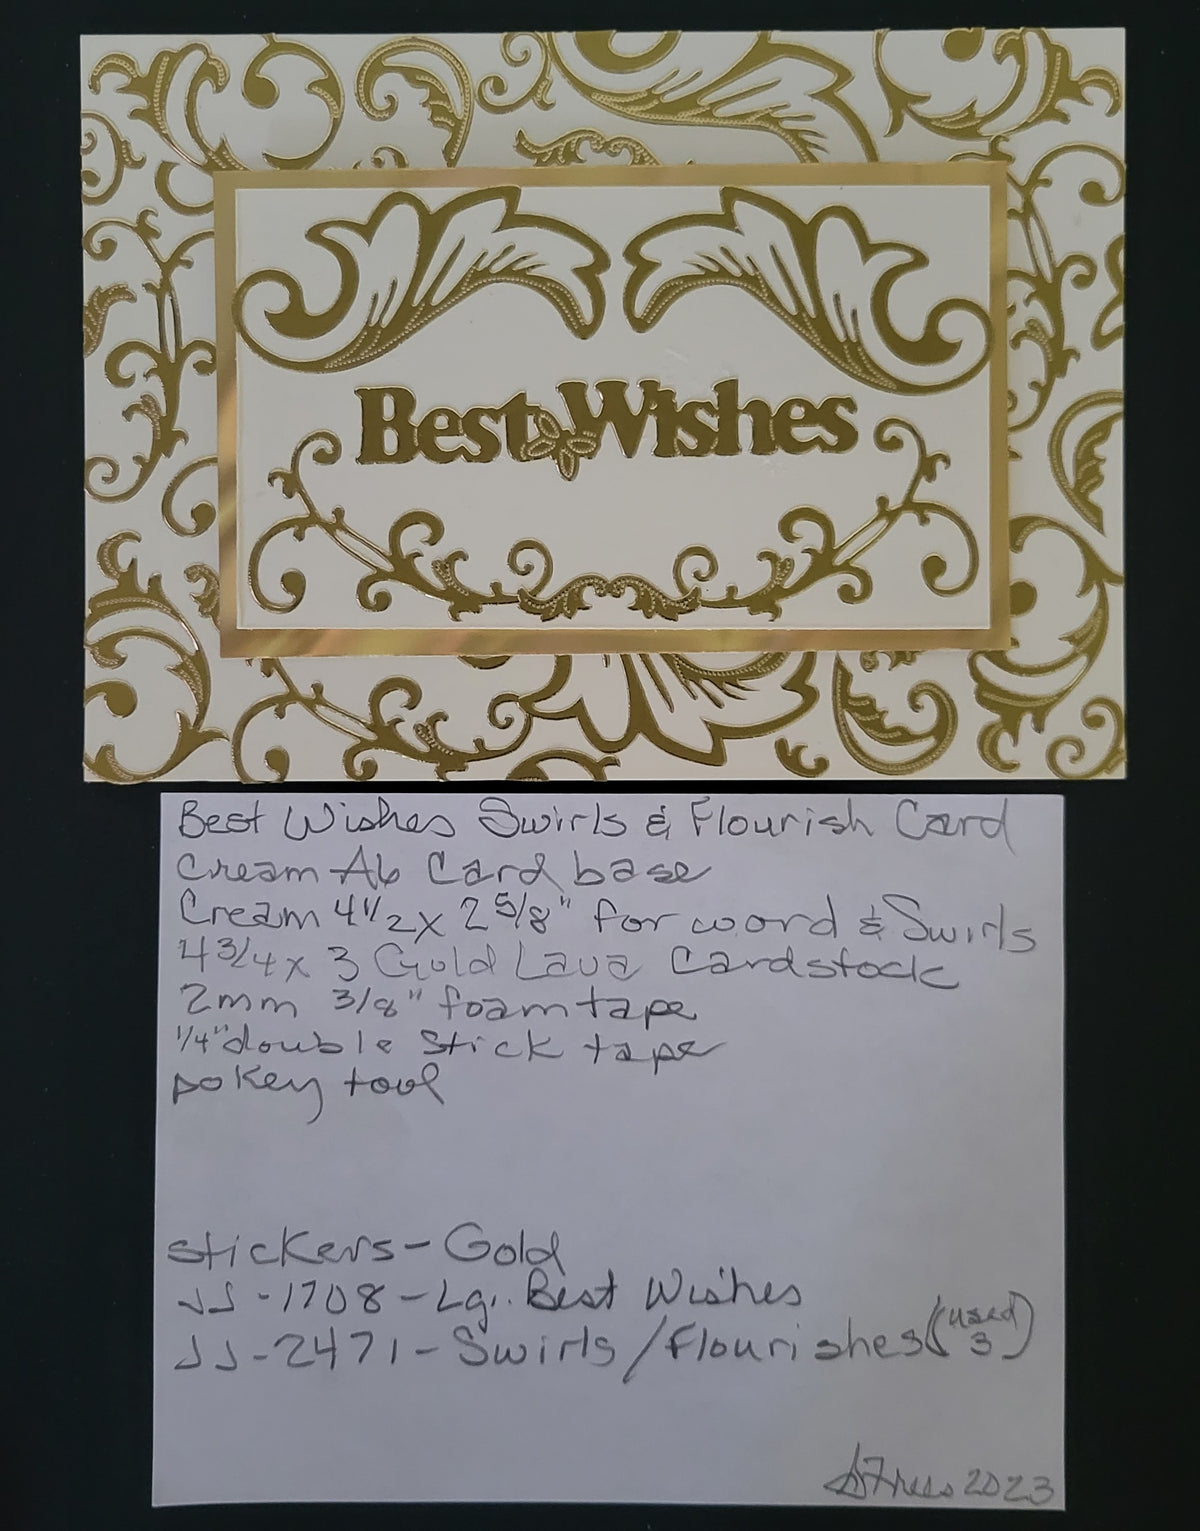 Best Wishes
Best Wishes Swirls & Flourish Card
Cream A6 Card base
Cream 4 1/2 x 2 5/8" for word & Swirls
4 3/4 x 3 Gold Lava Cardstock
2mm 3/8" foam tape
1/4" double stick tape
pokey tool
stickers - Gold
JJ - 1708 - Lg. Best Wishes
JJ - 2471 - Swirls / Flourishes (used 3)
2023